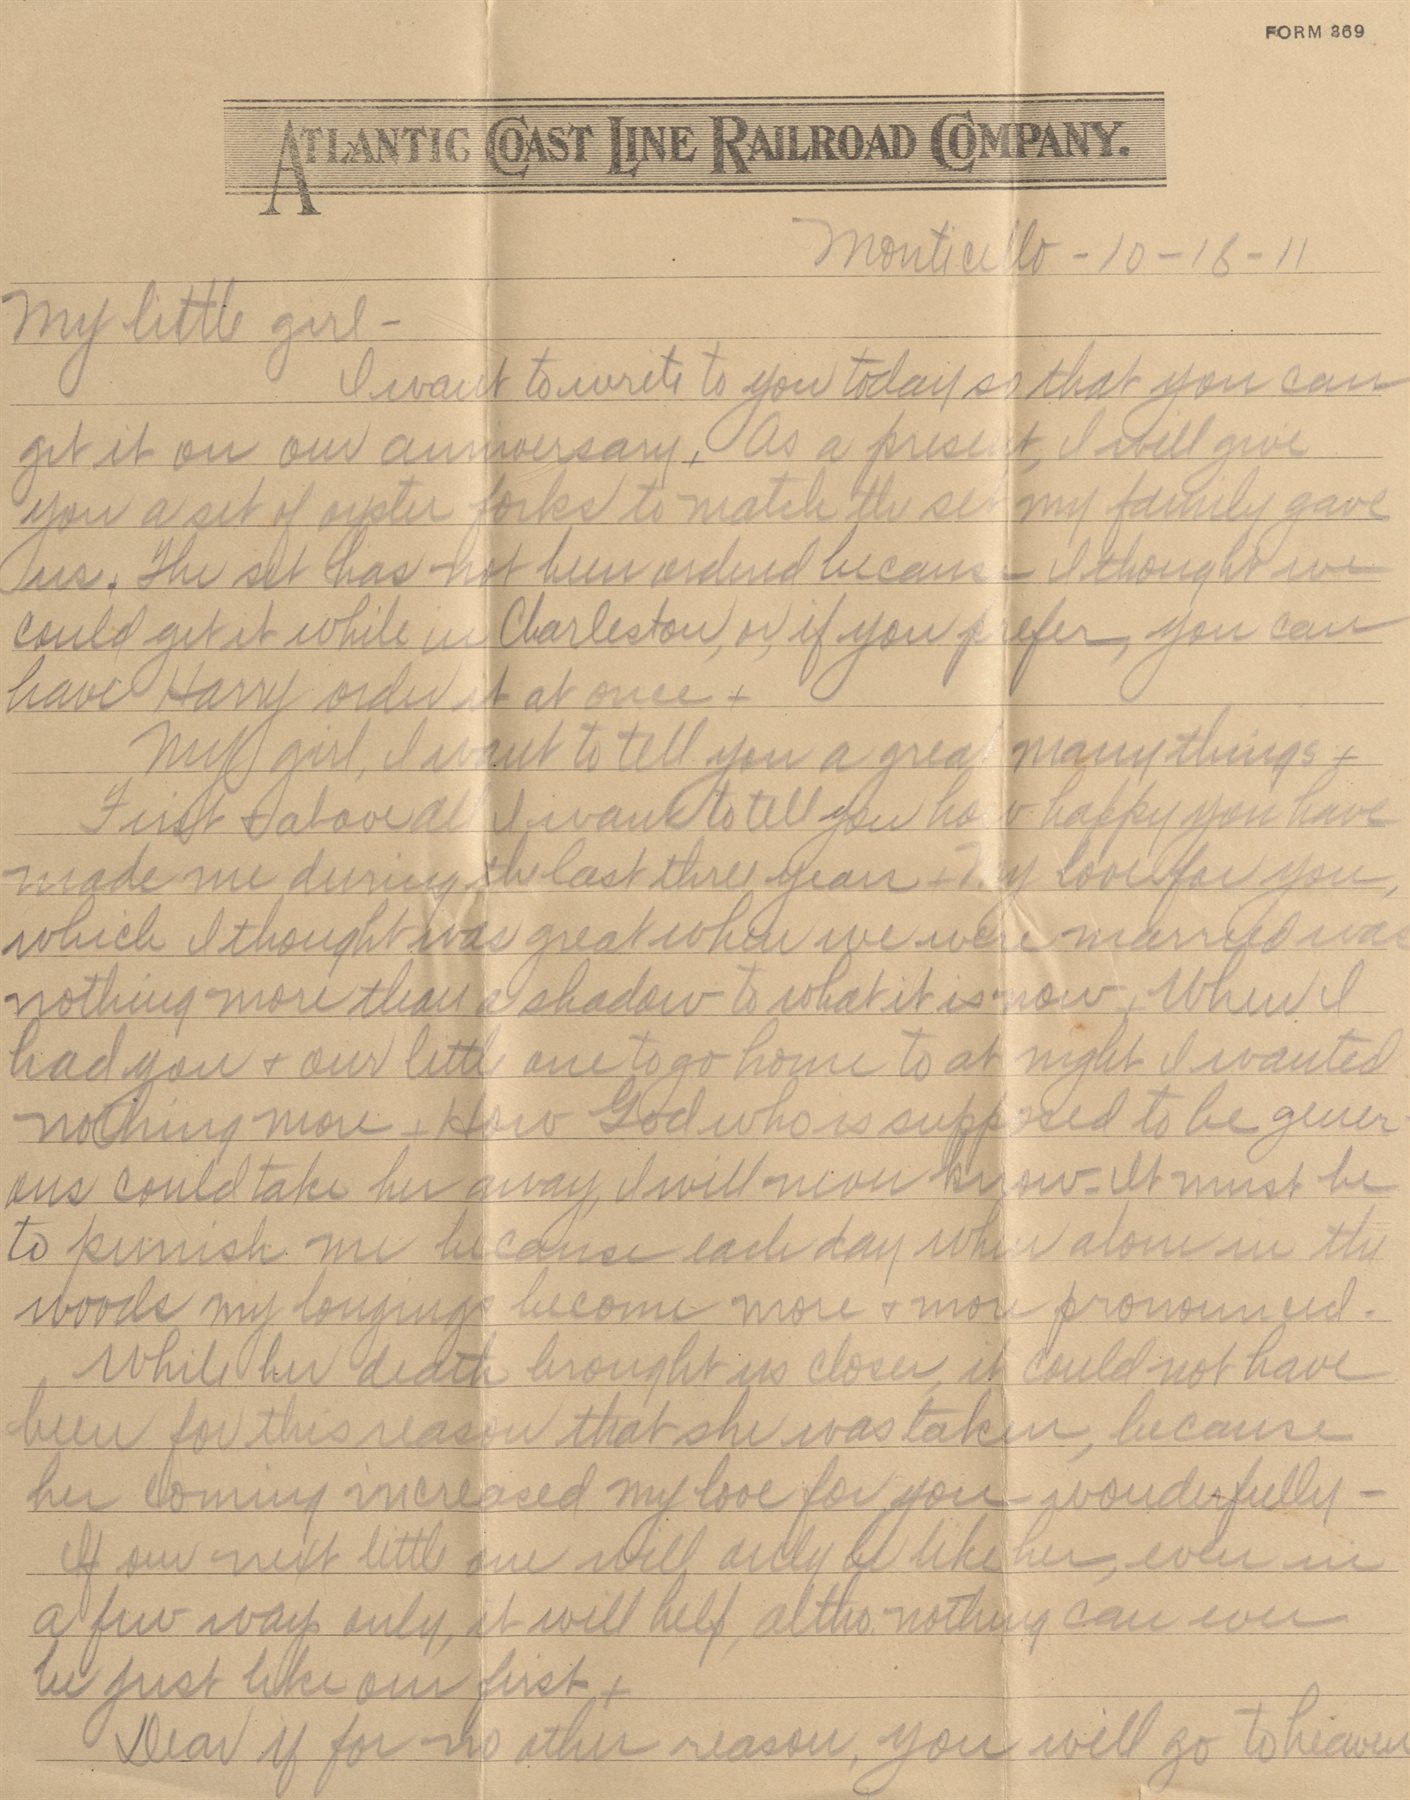 FORM 369
ATLANTIC COAST LINE RAILROAD COMPANY.
Monticello - 10 - 18 - 11
My little girl -
I want to write to you today so that you can
get it on our anniversary. As a present, I will give
you a set of oyster forks to match the set my family gave
us. The set has not been ordered because I thought we
could get it while in Charleston, or, if you prefer, you can
have Harry order it at once +
My girl, I want to tell you a great many things +
First & above all I want to tell you how happy you have
made me during the last three years + My love for you,
which I thought was great when we were married was
nothing more than a shadow to what it is now + When I
had you + our little one to go home to at night I wanted
nothing more + How God who is supposed to be gener-
ous could take her away, I will never know - It must be
to punish me because each day when alone in the
woods my longings become more + more pronounced -
While her death brought us closer, it could not have
been for this reason that she was taken, because
her coming increased my love for you wonderfully -
If our next little one will only be like her, even in
a few ways only, it will help, altho. nothing can ever
be just like our first +
Dear if for no other reason, you will go to heaven